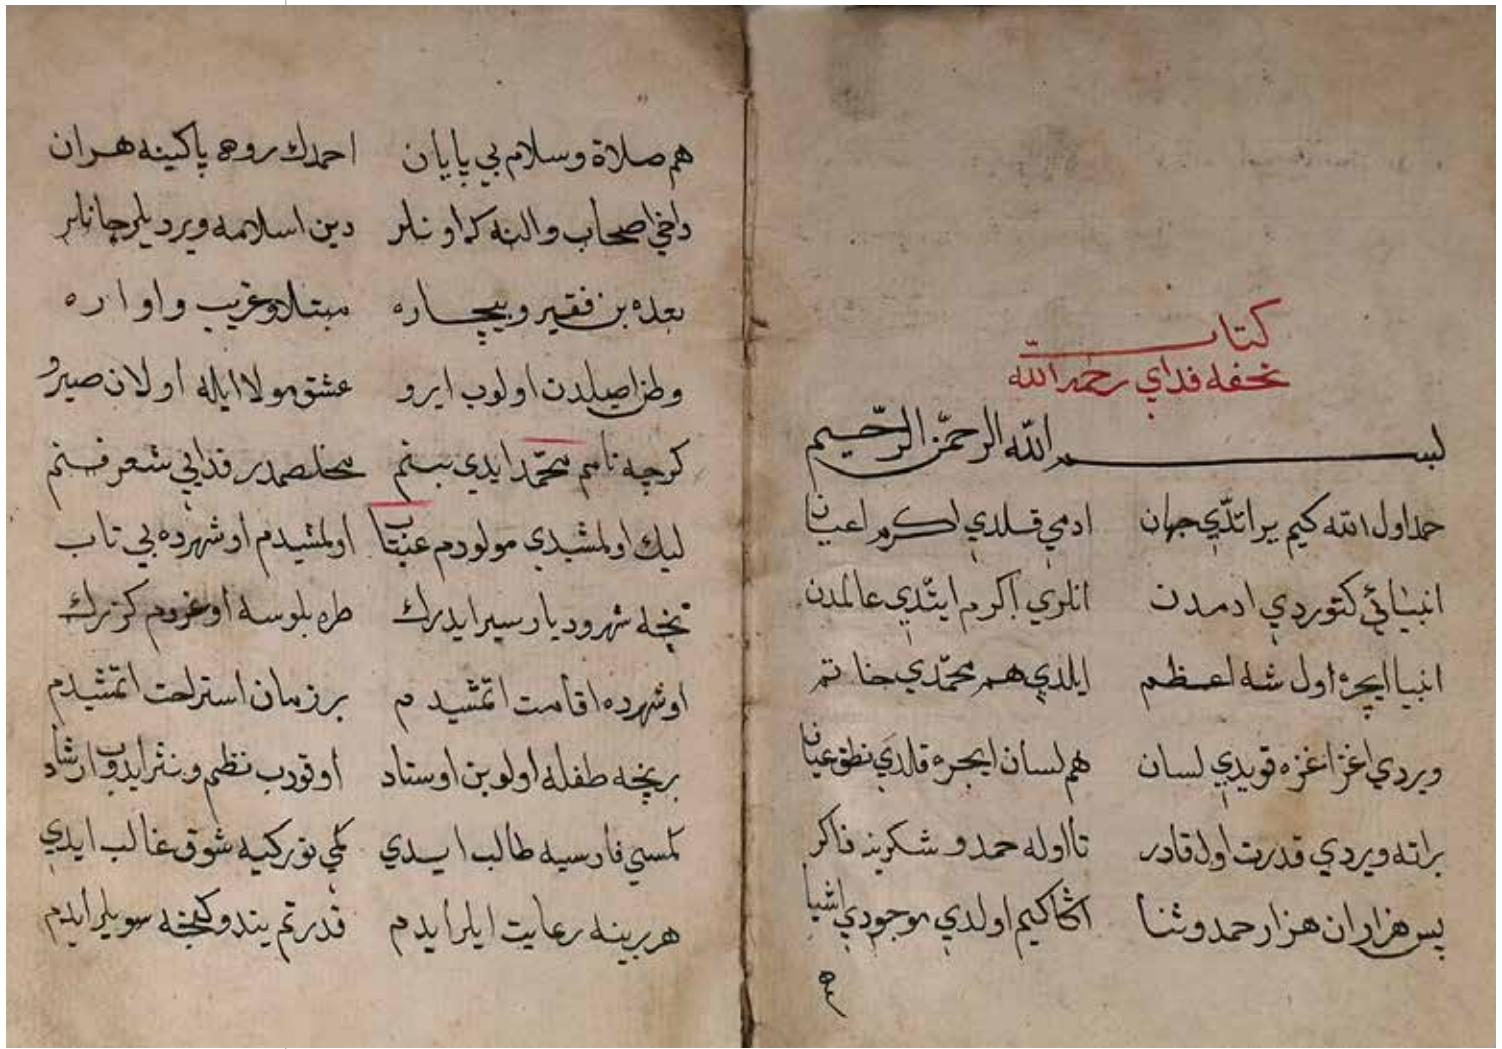 كتاب
تحفه فداي رحمه الله
بســـم الله الرحمن الرحيم
حمد اول الله كيم يراتدّي جهان ادمي قلدي اكرم اعيان
انبيائي كتوردي ادمدن انلري اكرم ايتدي عالمدن
انبيا ايچره اول شه اعظم ايلدي هم محمّدي خاتم
ويردي اغز اغزه قويدي لسان هم لسان ايچره قلدي نطق عيان
براته ويردي قدرت اول قادر تا اوله حمد و شكرينه ذاكر
پس هزاران هزار حمد وثنا اكا كيم اولدي موجودي اشيا
هم
هم صلاة وسلام بي پايان احمدك روح پاكينه هر ان
داخي اصحاب والنه كه اونلر دين اسلامه ويرديلر جانلر
بعده بن فقير وبيچاره مبتلا وغريب واواره
وطن اصيلدن اولوب ايرو عشق مولا ايله اولان صيرو
كرچه نامم محمّد ايدي بنم مخلصمدر فدايي شعر فنم
ليك اولمشيدي مولودم عنتاب اولمشيدم او شهرده بي تاب
نخچه شهر وديار سير ايدرك طره بلوسه اوغردم كزرك
اوشهرده اقامت اتمشيدم بر زمان استراحت اتمشيدم
بر نخچه طفله اولوبن اوستاد اوقودب نظم ونثر ايدوب ارشاد
كمسي فارسيه طالب ايدي كمي توركيه شوق غالب ايدي
هر برينه رعايت ايلر ايدم قدرتم يتدوكنجه سويلر ايدم